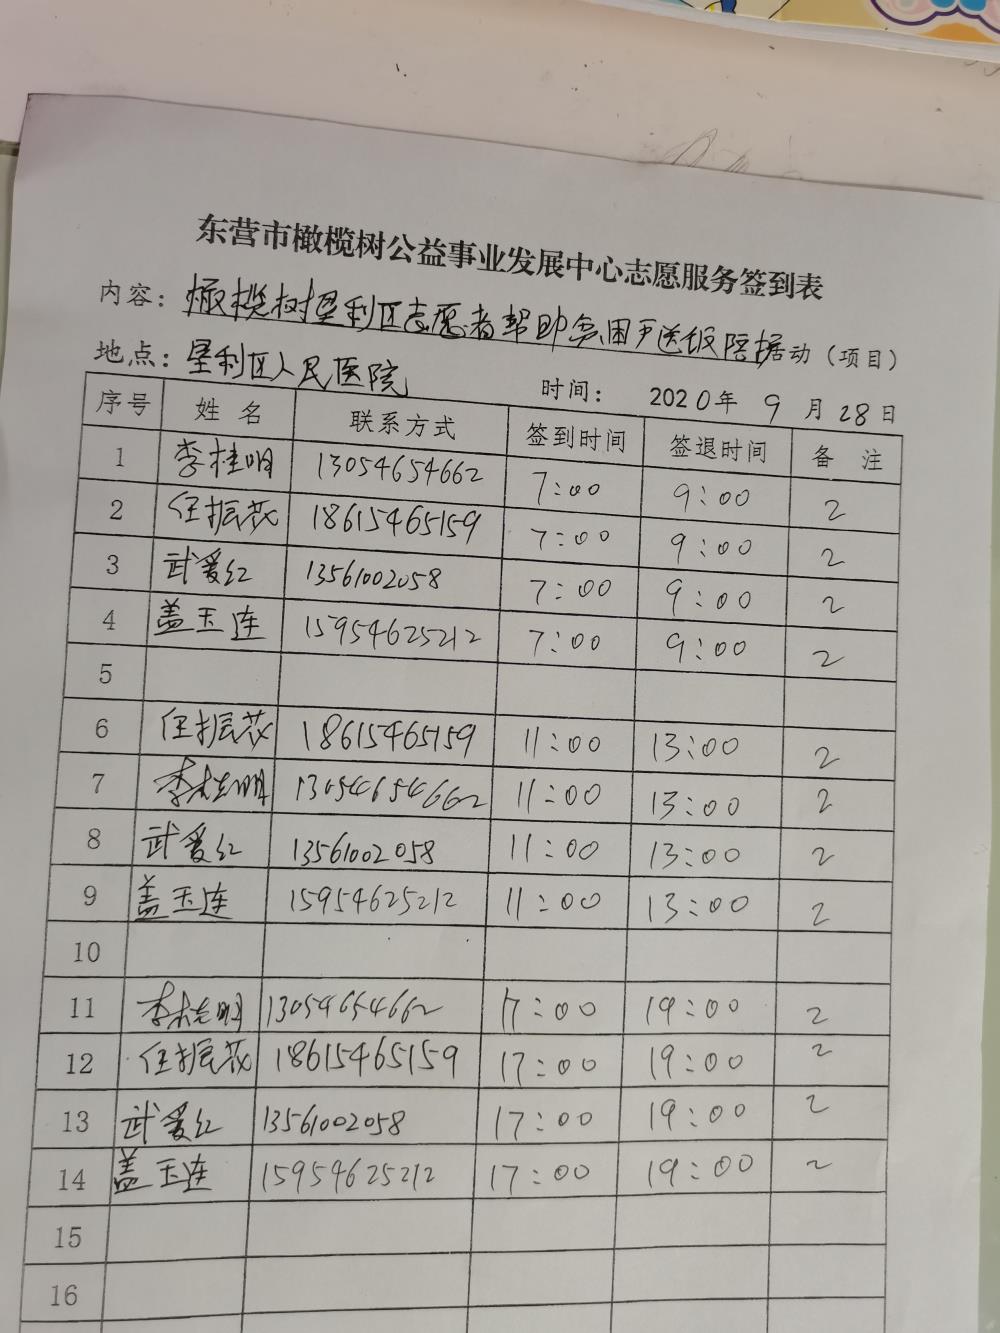 东营市橄榄树公益事业发展中心志愿服务签到表
内容：橄榄树垦利区志愿者帮助贫困户送饭陪护活动（项目）
地点：垦利区人民医院 时间： 2020年 9 月 28日
序号 姓 名 联系方式 签到时间 签退时间 备 注
1 李桂明 13054654662 7:00 9:00 2
2 任振花 18615465159 7:00 9:00 2
3 武爱红 13561002058 7:00 9:00 2
4 盖玉连 15954625212 7:00 9:00 2
5
6 任振花 18615465159 11:00 13:00 2
7 李桂明 13054654662 11:00 13:00 2
8 武爱红 13561002058 11:00 13:00 2
9 盖玉连 15954625212 11:00 13:00 2
10
11 李桂明 13054654662 17:00 19:00 2
12 任振花 18615465159 17:00 19:00 2
13 武爱红 13561002058 17:00 19:00 2
14 盖玉连 15954625212 17:00 19:00 2
15
16